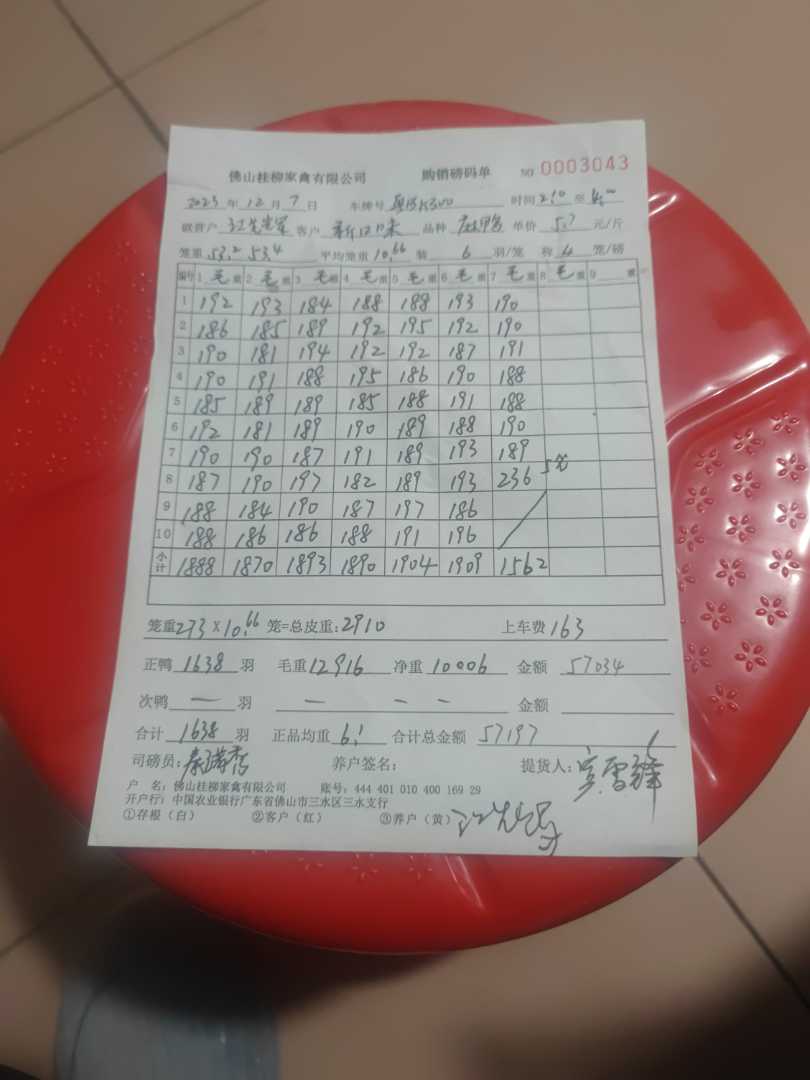 佛山桂柳家禽有限公司 购销磅码单 NO 0003043
2023 年 12 月 7 日 车牌号 时间 2:10 至 4:00
联营户 客户 新口味 品种 麻鸭 单价 5.7 元/斤
笼重 53.2 53.4 平均笼重 10.66 装 6 羽/笼 称 4 笼/磅
编号 1 毛 重 2 毛 重 3 毛 重 4 毛 重 5 毛 重 6 毛 重 7 毛 重 8 毛 重 9 重
1 192 193 184 188 188 193 190
2 186 185 189 192 195 192 190
3 190 181 194 192 192 187 191
4 190 191 188 195 186 190 188
5 185 189 189 185 188 191 188
6 192 181 189 190 189 188 190
7 190 190 187 191 189 193 189
8 187 190 197 182 189 193 236
9 188 184 190 187 197 186
10 188 186 186 188 191 196
小计 1888 1870 1893 1890 1904 1909 1562
笼重 273 X 10.66 笼=总皮重: 2910 上车费 163
正鸭 1638 羽 毛重 12916 净重 10006 金额 57034
次鸭 — 羽 — — — 金额
合计 1638 羽 正品均重 6.1 合计总金额 57197
司磅员: 养户签名: 提货人:
户 名: 佛山桂柳家禽有限公司 账号: 444 401 010 400 169 29
开户行: 中国农业银行广东省佛山市三水区三水支行
①存根（白） ②客户（红） ③养户（黄）